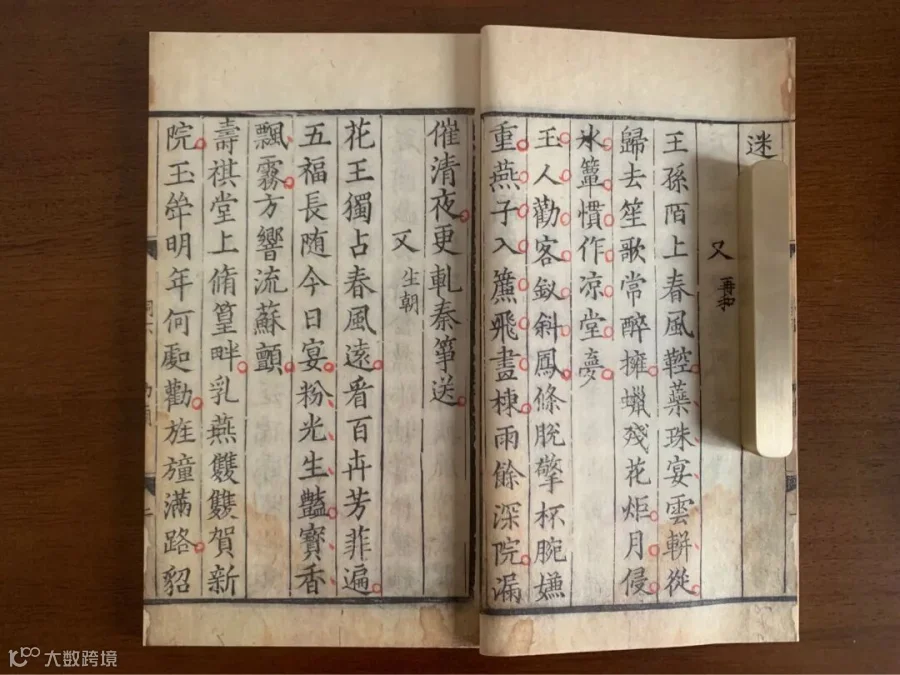 迷
又 再和
王孫陌上春風鞚蘂珠宴雲軿從
歸去笙歌常醉擁蠟殘花炬月侵
氷簟慣作凉堂夢
玉人勸客釵斜鳳條脫擎杯腕嫌
重燕子入簾飛畫棟雨餘深院漏
催清夜更軋秦箏送
又 生朝
花王獨占春風遠看百卉芳菲遍
五福長随今日宴粉光生豔寶香
飄霧方響流蘇顫
壽祺堂上脩篁畔乳燕雙雙賀新
院玉斚明年何處勸旌旜滿路貂
大数跨境